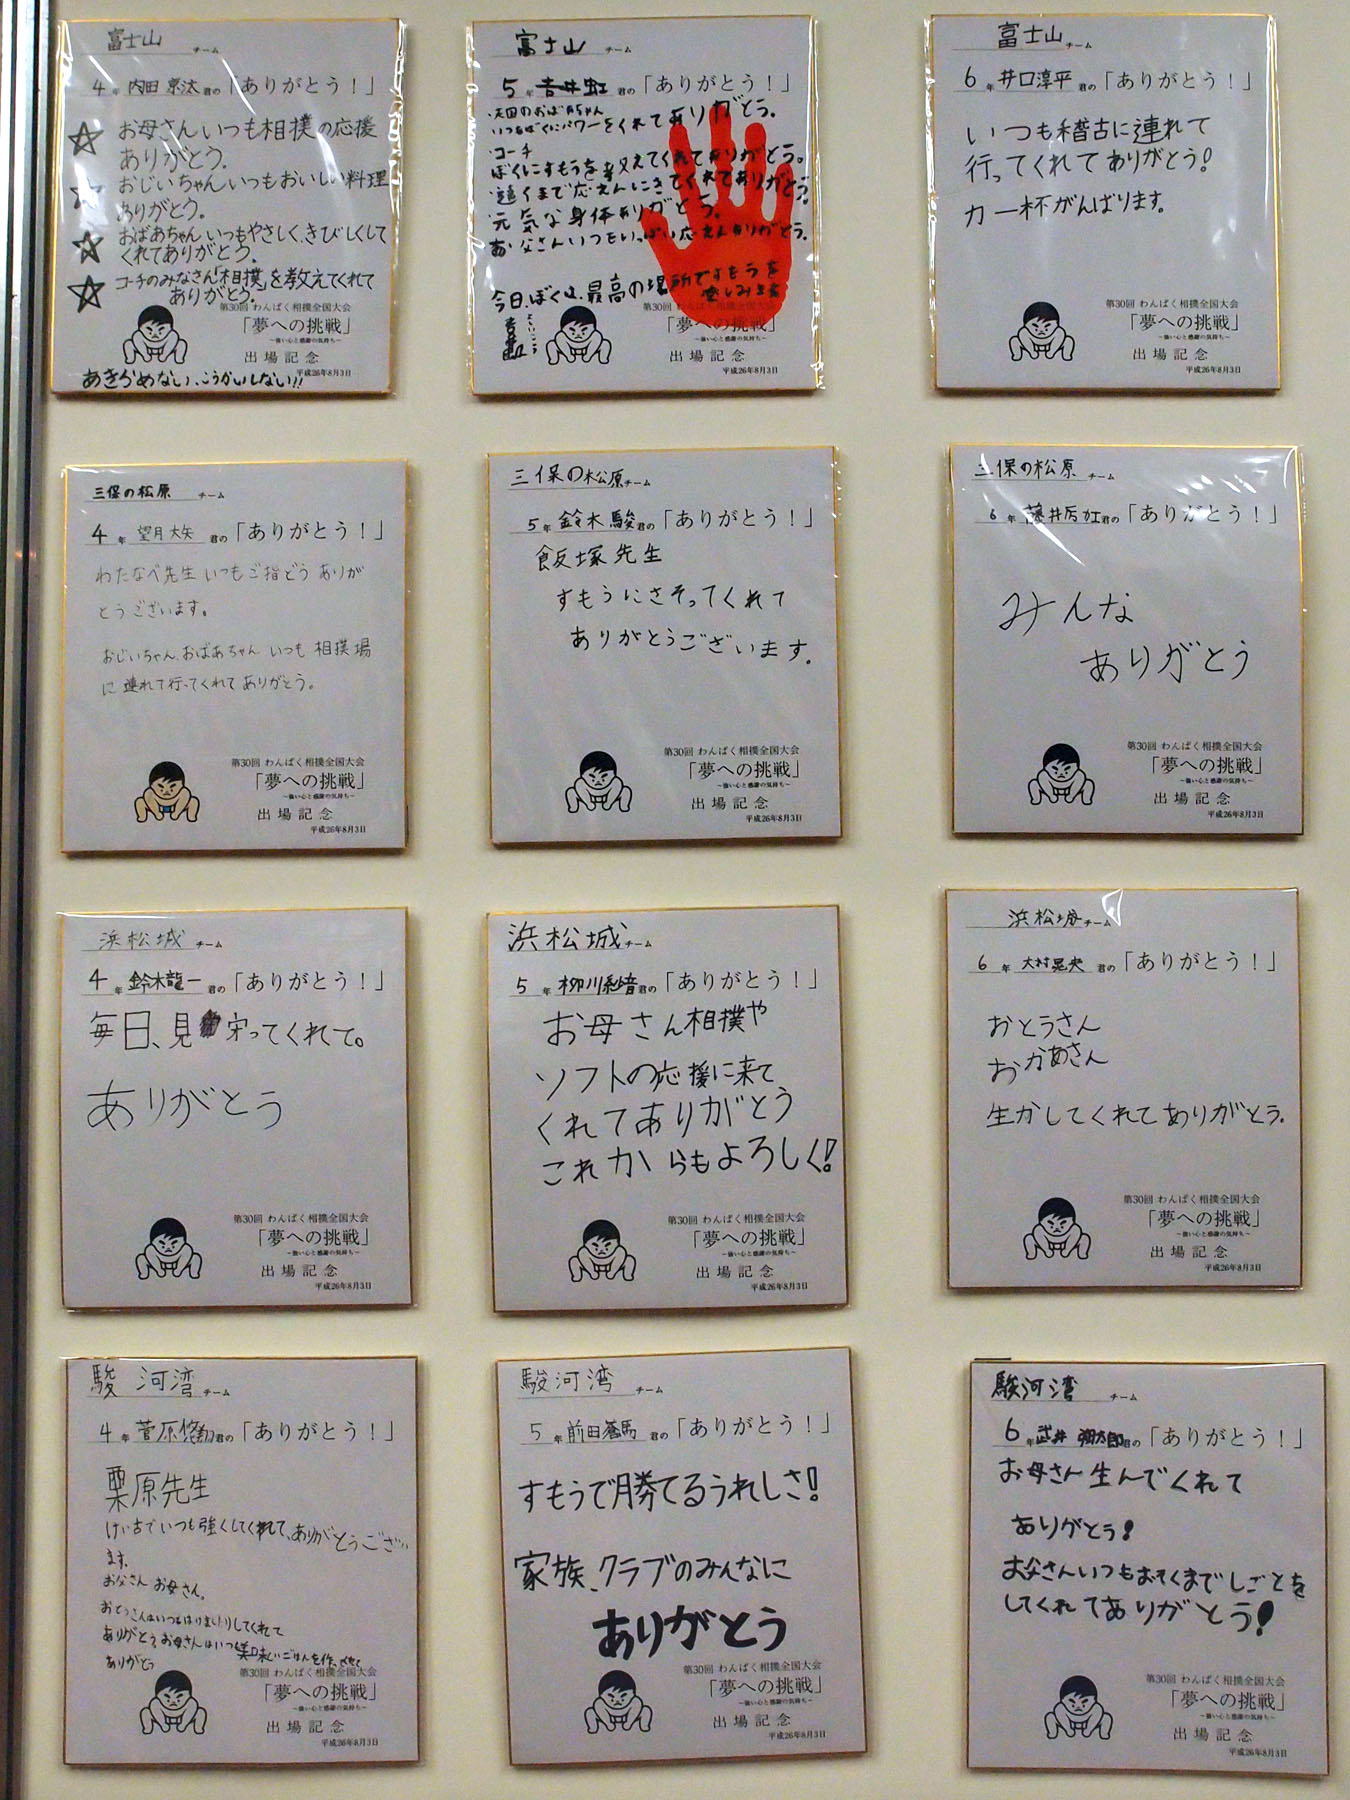 富士山 チーム
4年 内田京汰 君の「ありがとう！」
お母さんいつも相撲の応援
ありがとう。
おじいちゃんいつもおいしい料理
ありがとう。
おばあちゃんいつもやさしく、きびしくして
くれてありがとう。
コーチのみなさん「相撲」を教えてくれて
ありがとう。
第30回 わんぱく相撲全国大会
「夢への挑戦」
～強い心と感謝の気持ち～
出場記念
平成26年8月3日
あきらめない、こうかいしない!!
富士山 チーム
5年 吉井虹 君の「ありがとう！」
・天国のおばあちゃん
いつもぼくにパワーをくれてありがとう。
・コーチ
ぼくにすもうを教えてくれてありがとう。
・遠くまで応えんにきてくれてありがとう。
・元気な身体ありがとう。
お父さんいつもいっぱい応えんありがとう。
今日、ぼくは、最高の場所ですもうを
楽しみます
第30回 わんぱく相撲全国大会
「夢への挑戦」
～強い心と感謝の気持ち～
出場記念
平成26年8月3日
富士山 チーム
6年 井口淳平 君の「ありがとう！」
いつも稽古に連れて
行ってくれてありがとう!
力一杯がんばります。
第30回 わんぱく相撲全国大会
「夢への挑戦」
～強い心と感謝の気持ち～
出場記念
平成26年8月3日
三保の松原 チーム
4年 望月大矢 君の「ありがとう！」
わたなべ先生いつもご指どうありが
とうございます。
おじいちゃん、おばあちゃんいつも相撲場
に連れて行ってくれてありがとう。
第30回 わんぱく相撲全国大会
「夢への挑戦」
～強い心と感謝の気持ち～
出場記念
平成26年8月3日
三保の松原チーム
5年 鈴木駿君の「ありがとう！」
飯塚先生
すもうにさそってくれて
ありがとうございます。
第30回 わんぱく相撲全国大会
「夢への挑戦」
～強い心と感謝の気持ち～
出場記念
平成26年8月3日
三保の松原 チーム
6年 藤井 君の「ありがとう！」
みんな
ありがとう
第30回 わんぱく相撲全国大会
「夢への挑戦」
～強い心と感謝の気持ち～
出場記念
平成26年8月3日
浜松城 チーム
4年 鈴木龍一 君の「ありがとう！」
毎日、見守ってくれて。
ありがとう
第30回 わんぱく相撲全国大会
「夢への挑戦」
～強い心と感謝の気持ち～
出場記念
平成26年8月3日
浜松城チーム
5年 柳川 君の「ありがとう！」
お母さん相撲や
ソフトの応援に来て
くれてありがとう
これからもよろしく!
第30回 わんぱく相撲全国大会
「夢への挑戦」
～強い心と感謝の気持ち～
出場記念
平成26年8月3日
浜松城チーム
6年 大村晃央 君の「ありがとう！」
おとうさん
おかあさん
生かしてくれてありがとう。
第30回 わんぱく相撲全国大会
「夢への挑戦」
～強い心と感謝の気持ち～
出場記念
平成26年8月3日
駿河湾チーム
4年 菅原悠翔君の「ありがとう！」
栗原先生
けい古でいつも強くしてくれて、ありがとうござい
ます。
お父さん お母さん。
おとうさんはいつもはげましたりしてくれて
ありがとう。お母さんはいつも美味しいごはんを作
ありがとう
第30回 わんぱく相撲全国大会
「夢への挑戦」
～強い心と感謝の気持ち～
出場記念
平成26年8月3日
駿河湾 チーム
5年 前田蒼馬 君の「ありがとう！」
すもうで勝てるうれしさ!
家族、クラブのみんなに
ありがとう
第30回 わんぱく相撲全国大会
「夢への挑戦」
～強い心と感謝の気持ち～
出場記念
平成26年8月3日
駿河湾 チーム
6年 武井 弥太郎君の「ありがとう！」
お母さん生んでくれて
ありがとう!
お父さんいつもおそくまでしごとを
してくれてありがとう!
第30回 わんぱく相撲全国大会
「夢への挑戦」
～強い心と感謝の気持ち～
出場記念
平成26年8月3日